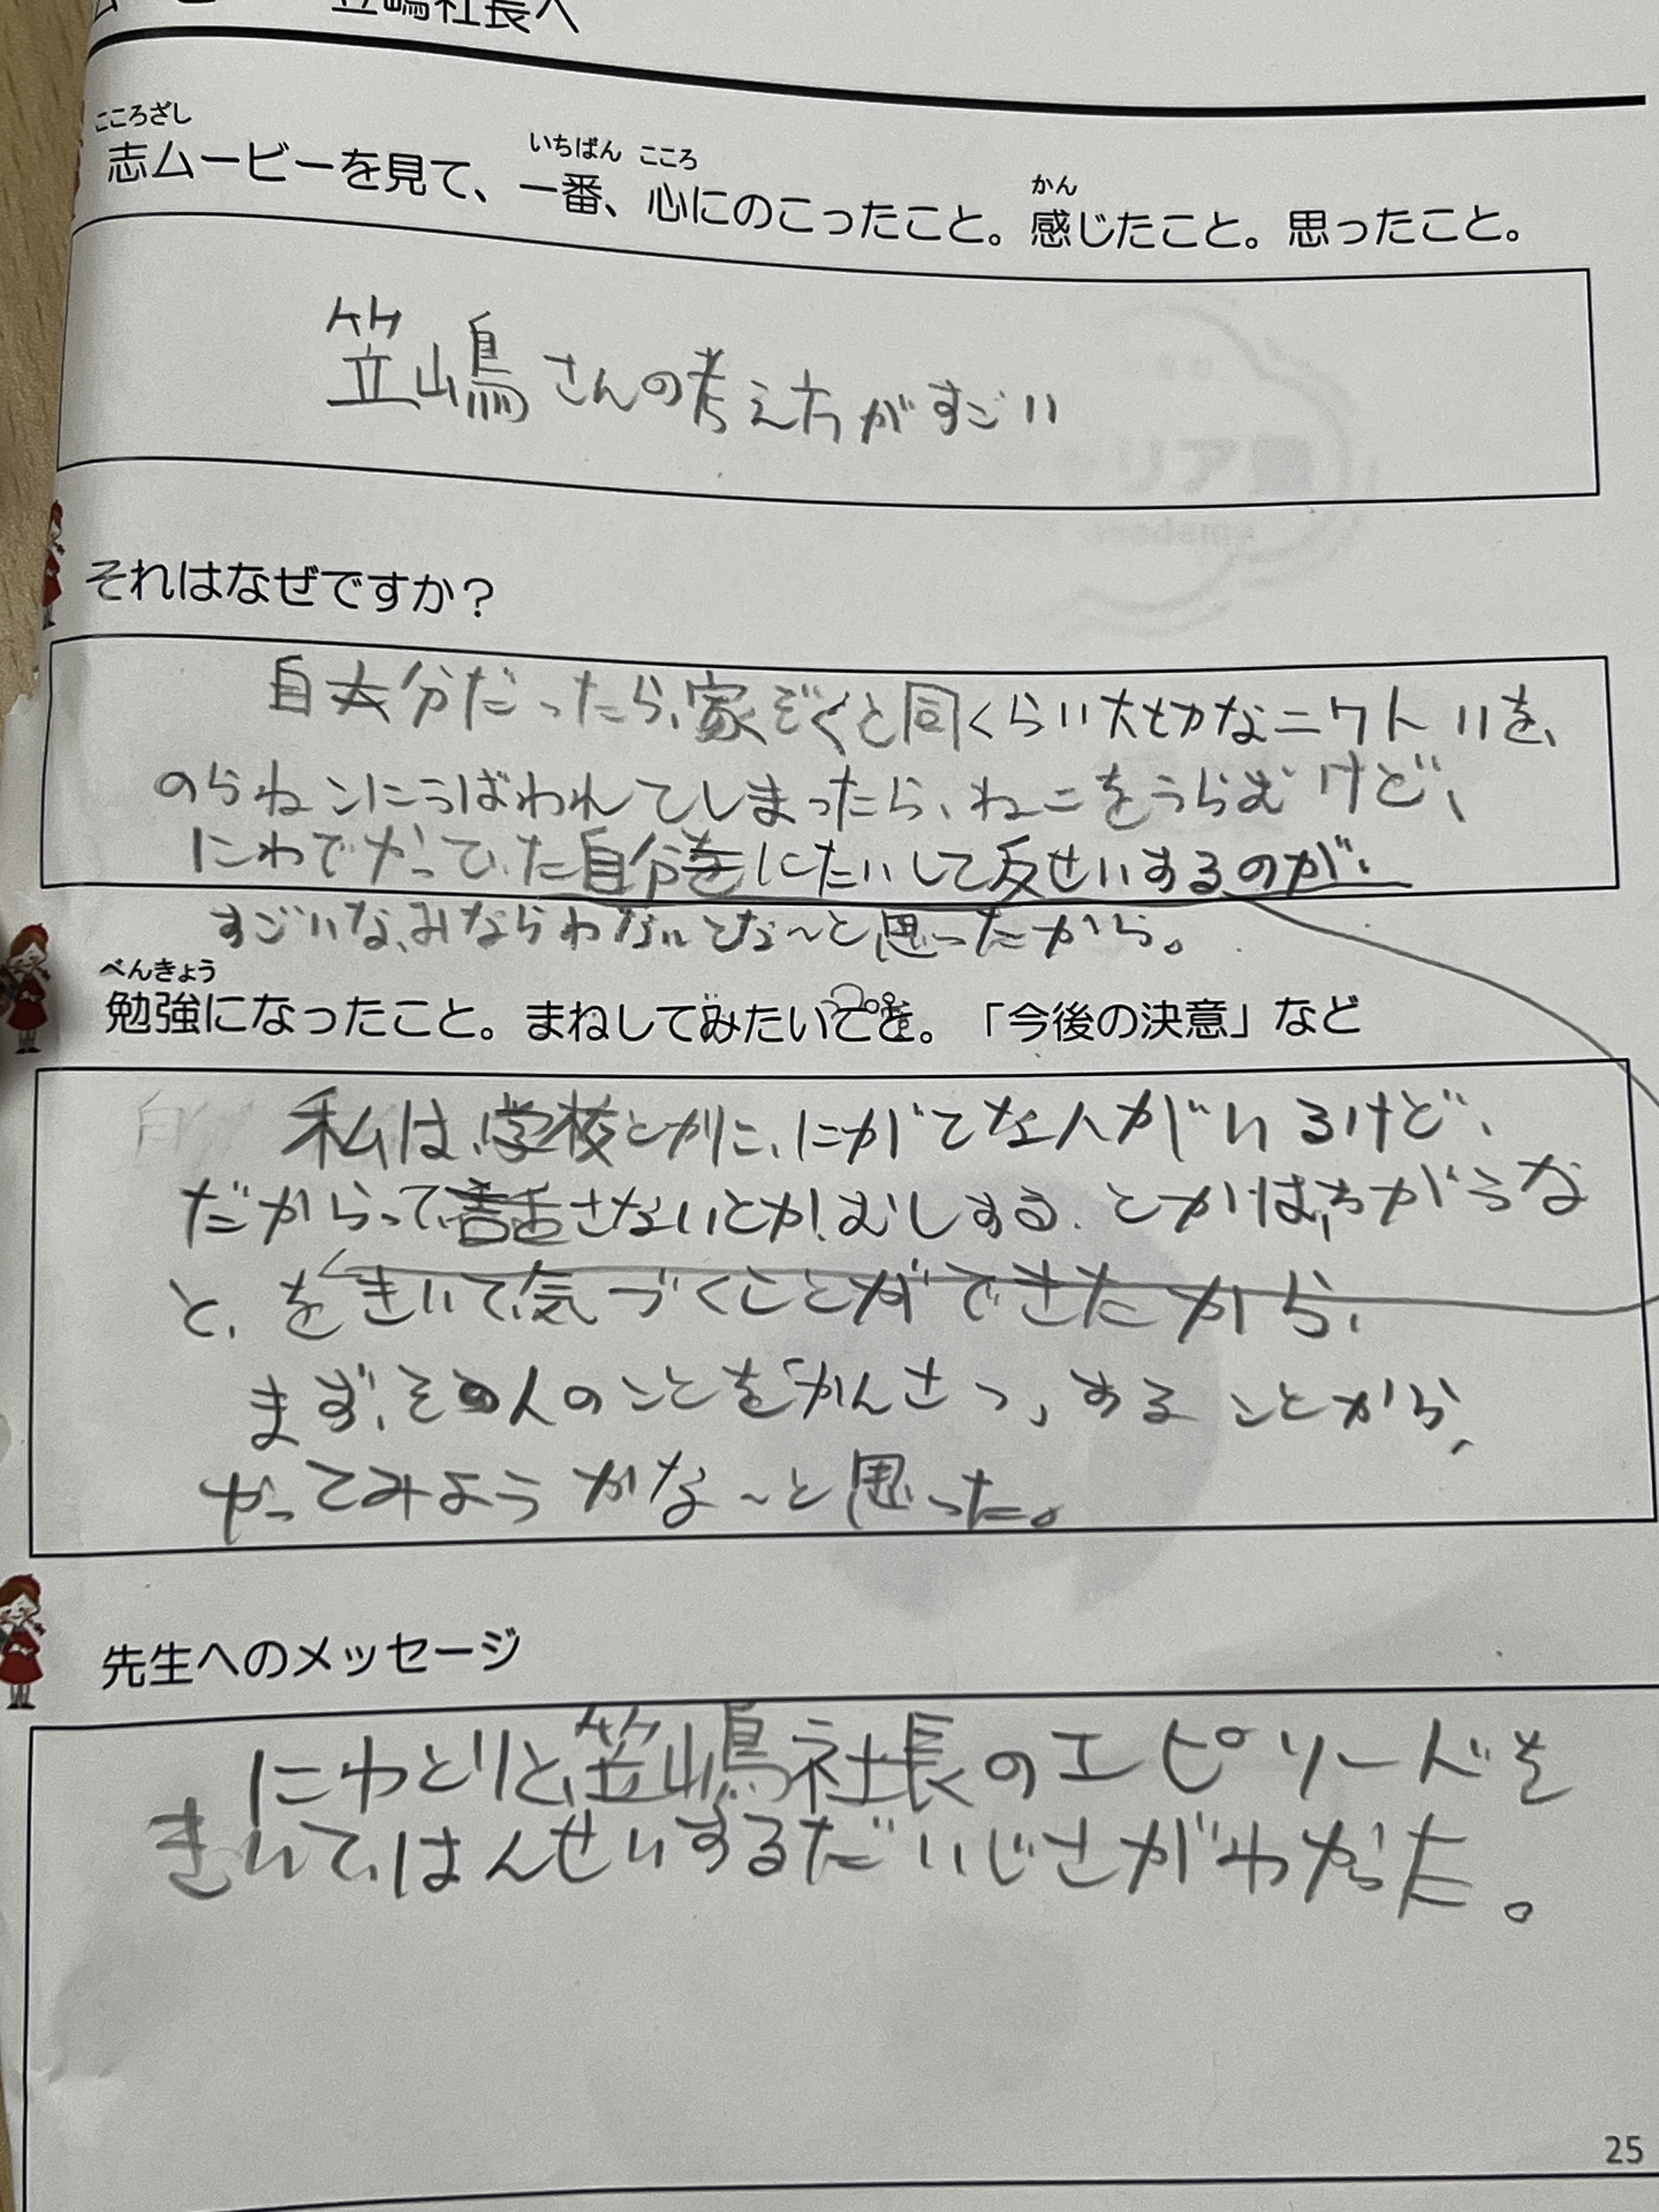 笠嶋社長へ
こころざし いちばん こころ かん
志ムービーを見て、一番、心にのこったこと。感じたこと。思ったこと。
笠嶋さんの考え方がすごい
それはなぜですか？
自分だったら、家ぞくと同くらい大切なニワトリを、
のらねこにうばわれてしまったら、ねこをうらむけど、
にわでかっていた自分にたいして反せいするのが、
すごいな、みならわないとな〜と思ったから。
べんきょう
勉強になったこと。まねしてみたいこと。「今後の決意」など
私は、学校とかに、にがてな人がいるけど、
だからって、話さないとか、むしする、とかは、ちがうな
と、をきいて、気づくことができたから、
まず、その人のことを「かんさつ」することから、
やってみようかな〜と思った。
先生へのメッセージ
にわとりと、笠嶋社長のエピソードを
きいて、はんせいするだいじさがわかった。
25